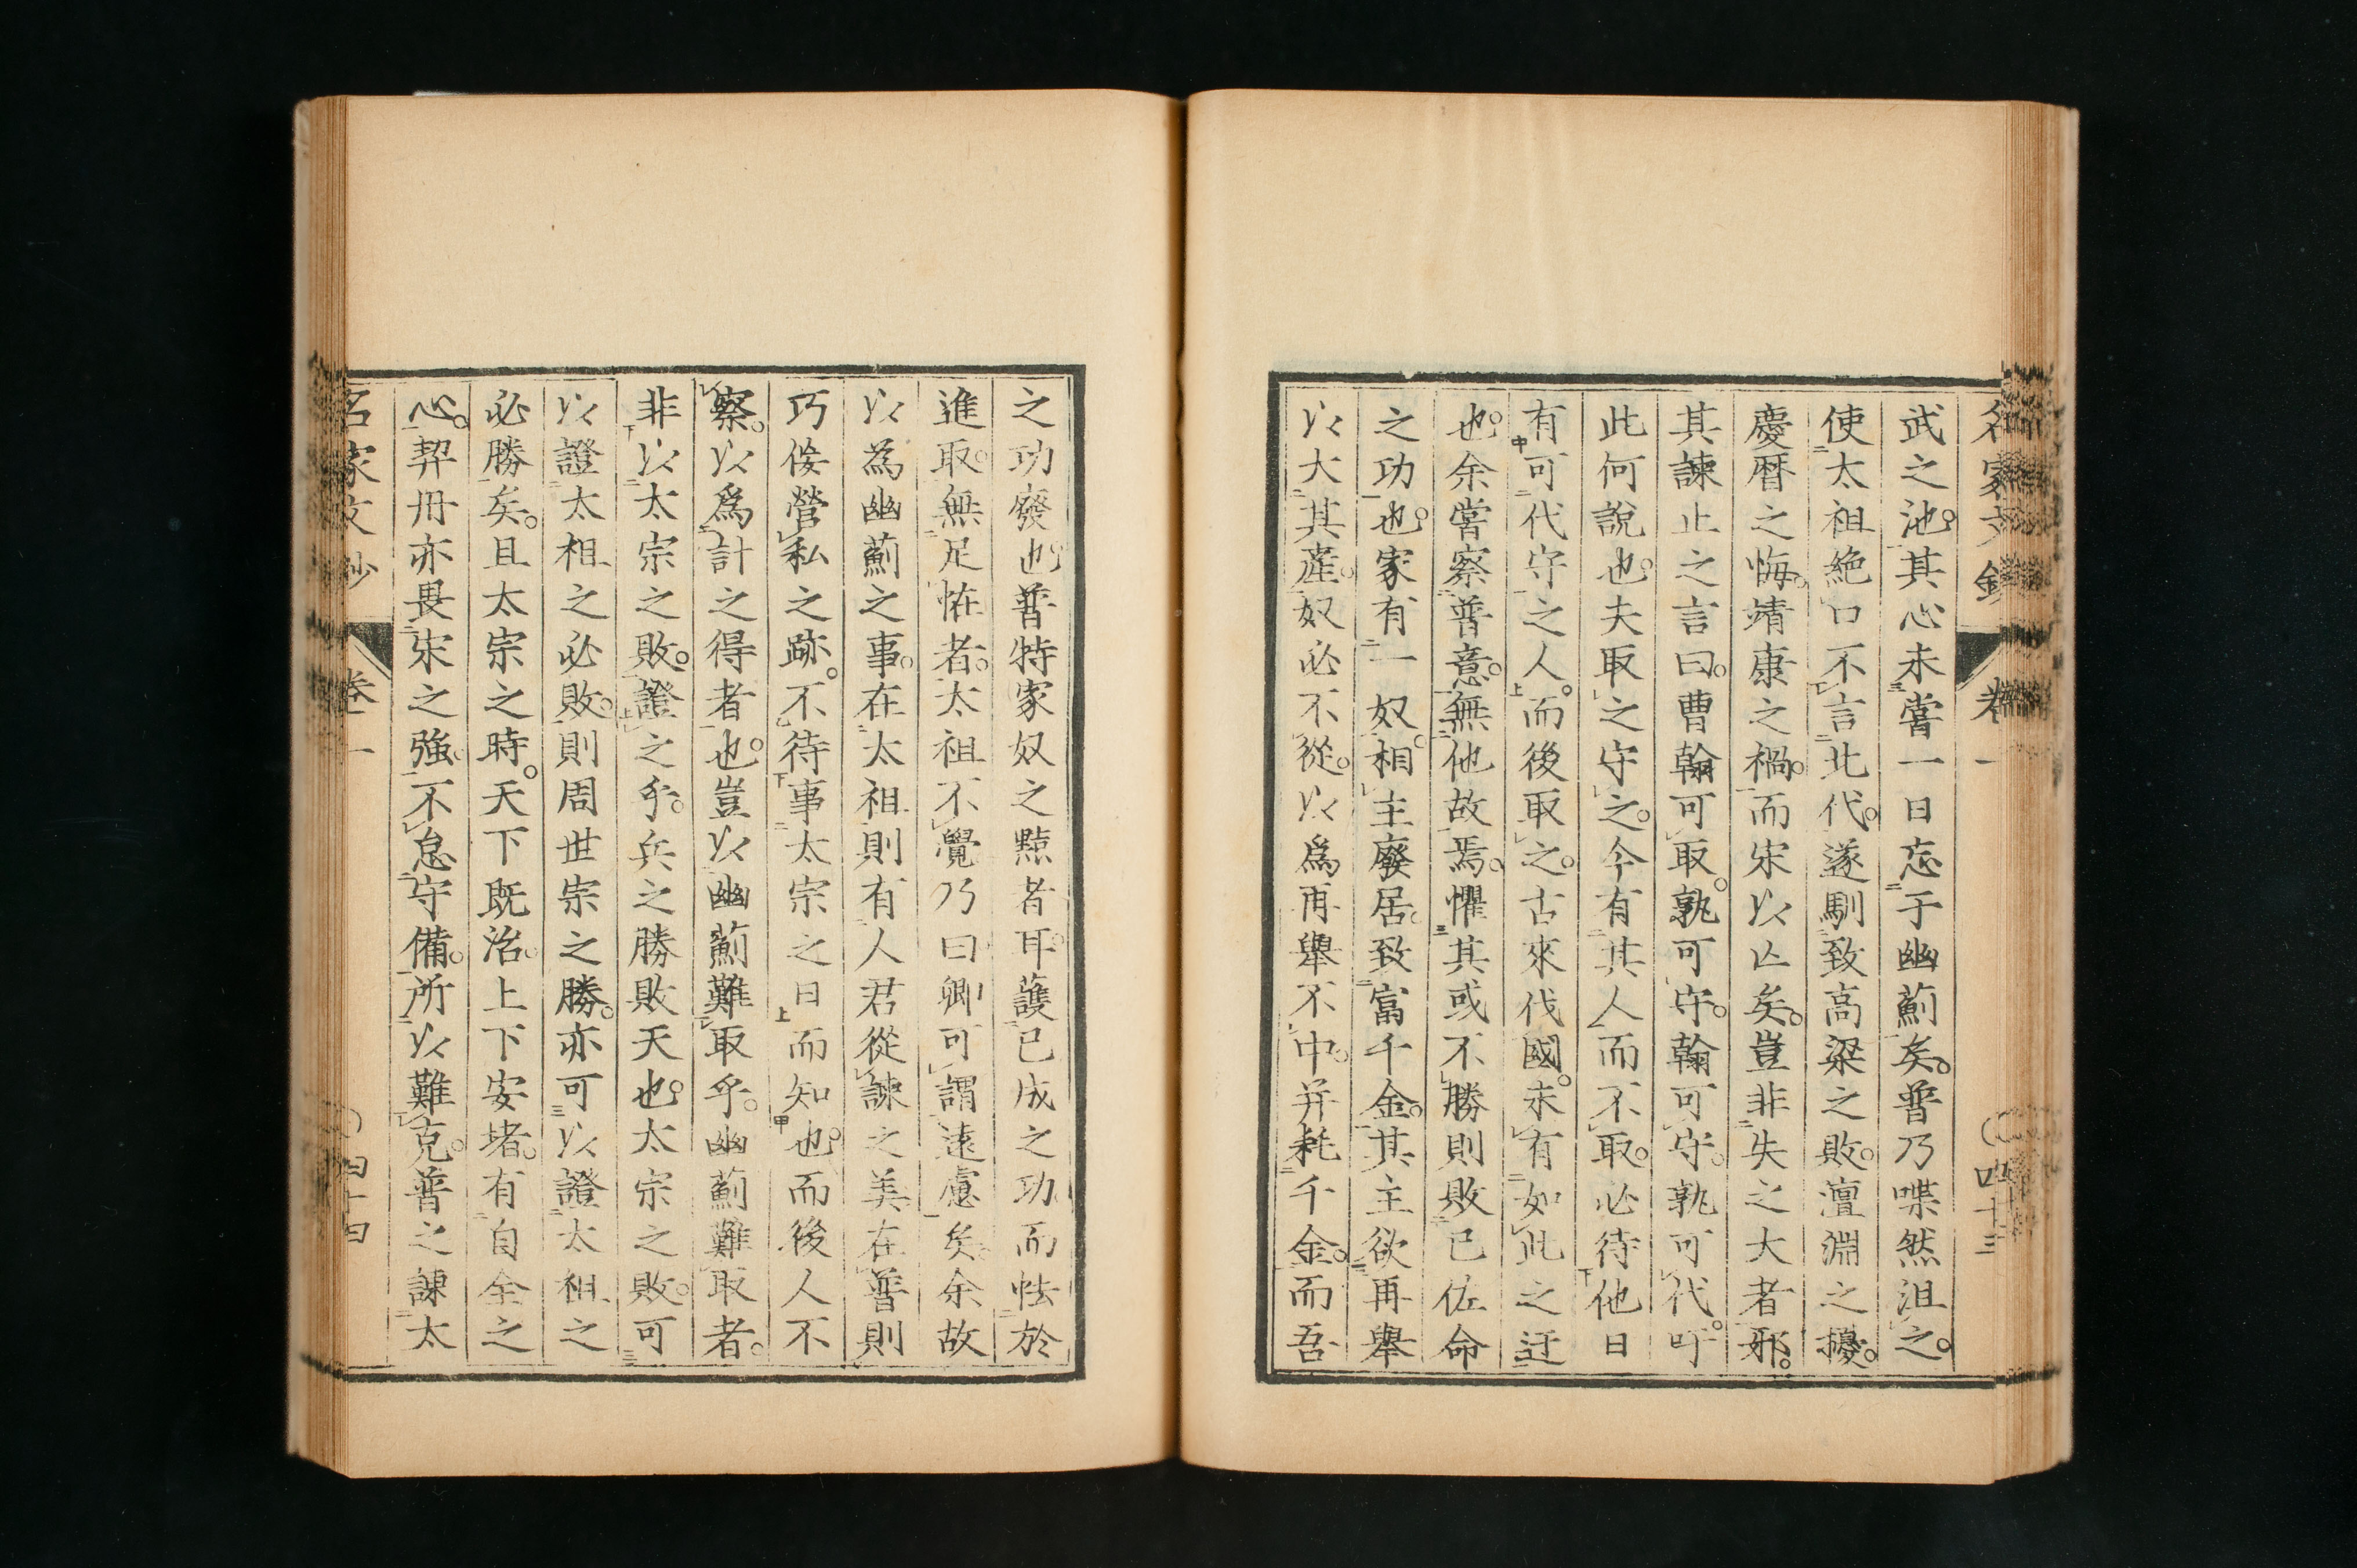 名家文鈔 卷一 四十三
武之池。其心未嘗一日忘于幽薊矣。普乃喋然沮之。
使太祖絶口不言北代。遂馴致高梁之敗。澶淵之擾。
慶曆之悔。靖康之禍。而宋以亾矣。豈非失之大者邪。
其諫止之言曰。曹翰可取。孰可守。翰可守。孰可代。吁
此何說也。夫取之守之。今有其人而不取。必待他日
有可代守之人。而後取之。古來伐國。未有如此之迂
也。余嘗察普意。無他故焉。懼其或不勝則敗已佐命
之功也。家有一奴。相主廢居。致富千金。其主欲再舉
以大其產。奴必不從。以爲再舉不中。并耗千金。而吾
之功廢也。普特家奴之黠者耳。護已成之功。而怯於
進取。無足恠者。太祖不覺。乃曰卿可謂遠慮矣。余故
以為幽薊之事。在太祖則有人君從諫之美。在普則
巧倿營私之跡。不待事太宗之日而知也。而後人不
察。以以爲計之得者也。豈以幽薊難取乎。幽薊難取者。
非以太宗之敗。證之乎。兵之勝敗天也。太宗之敗。可
以證太祖之必敗。則周世宗之勝。亦可以證太祖之
必勝矣。且太宗之時。天下既治。上下安堵。有自全之
心。契丹亦畏宋之強。不怠守備。所以難克。普之諫太
名家文鈔 卷一 四十四